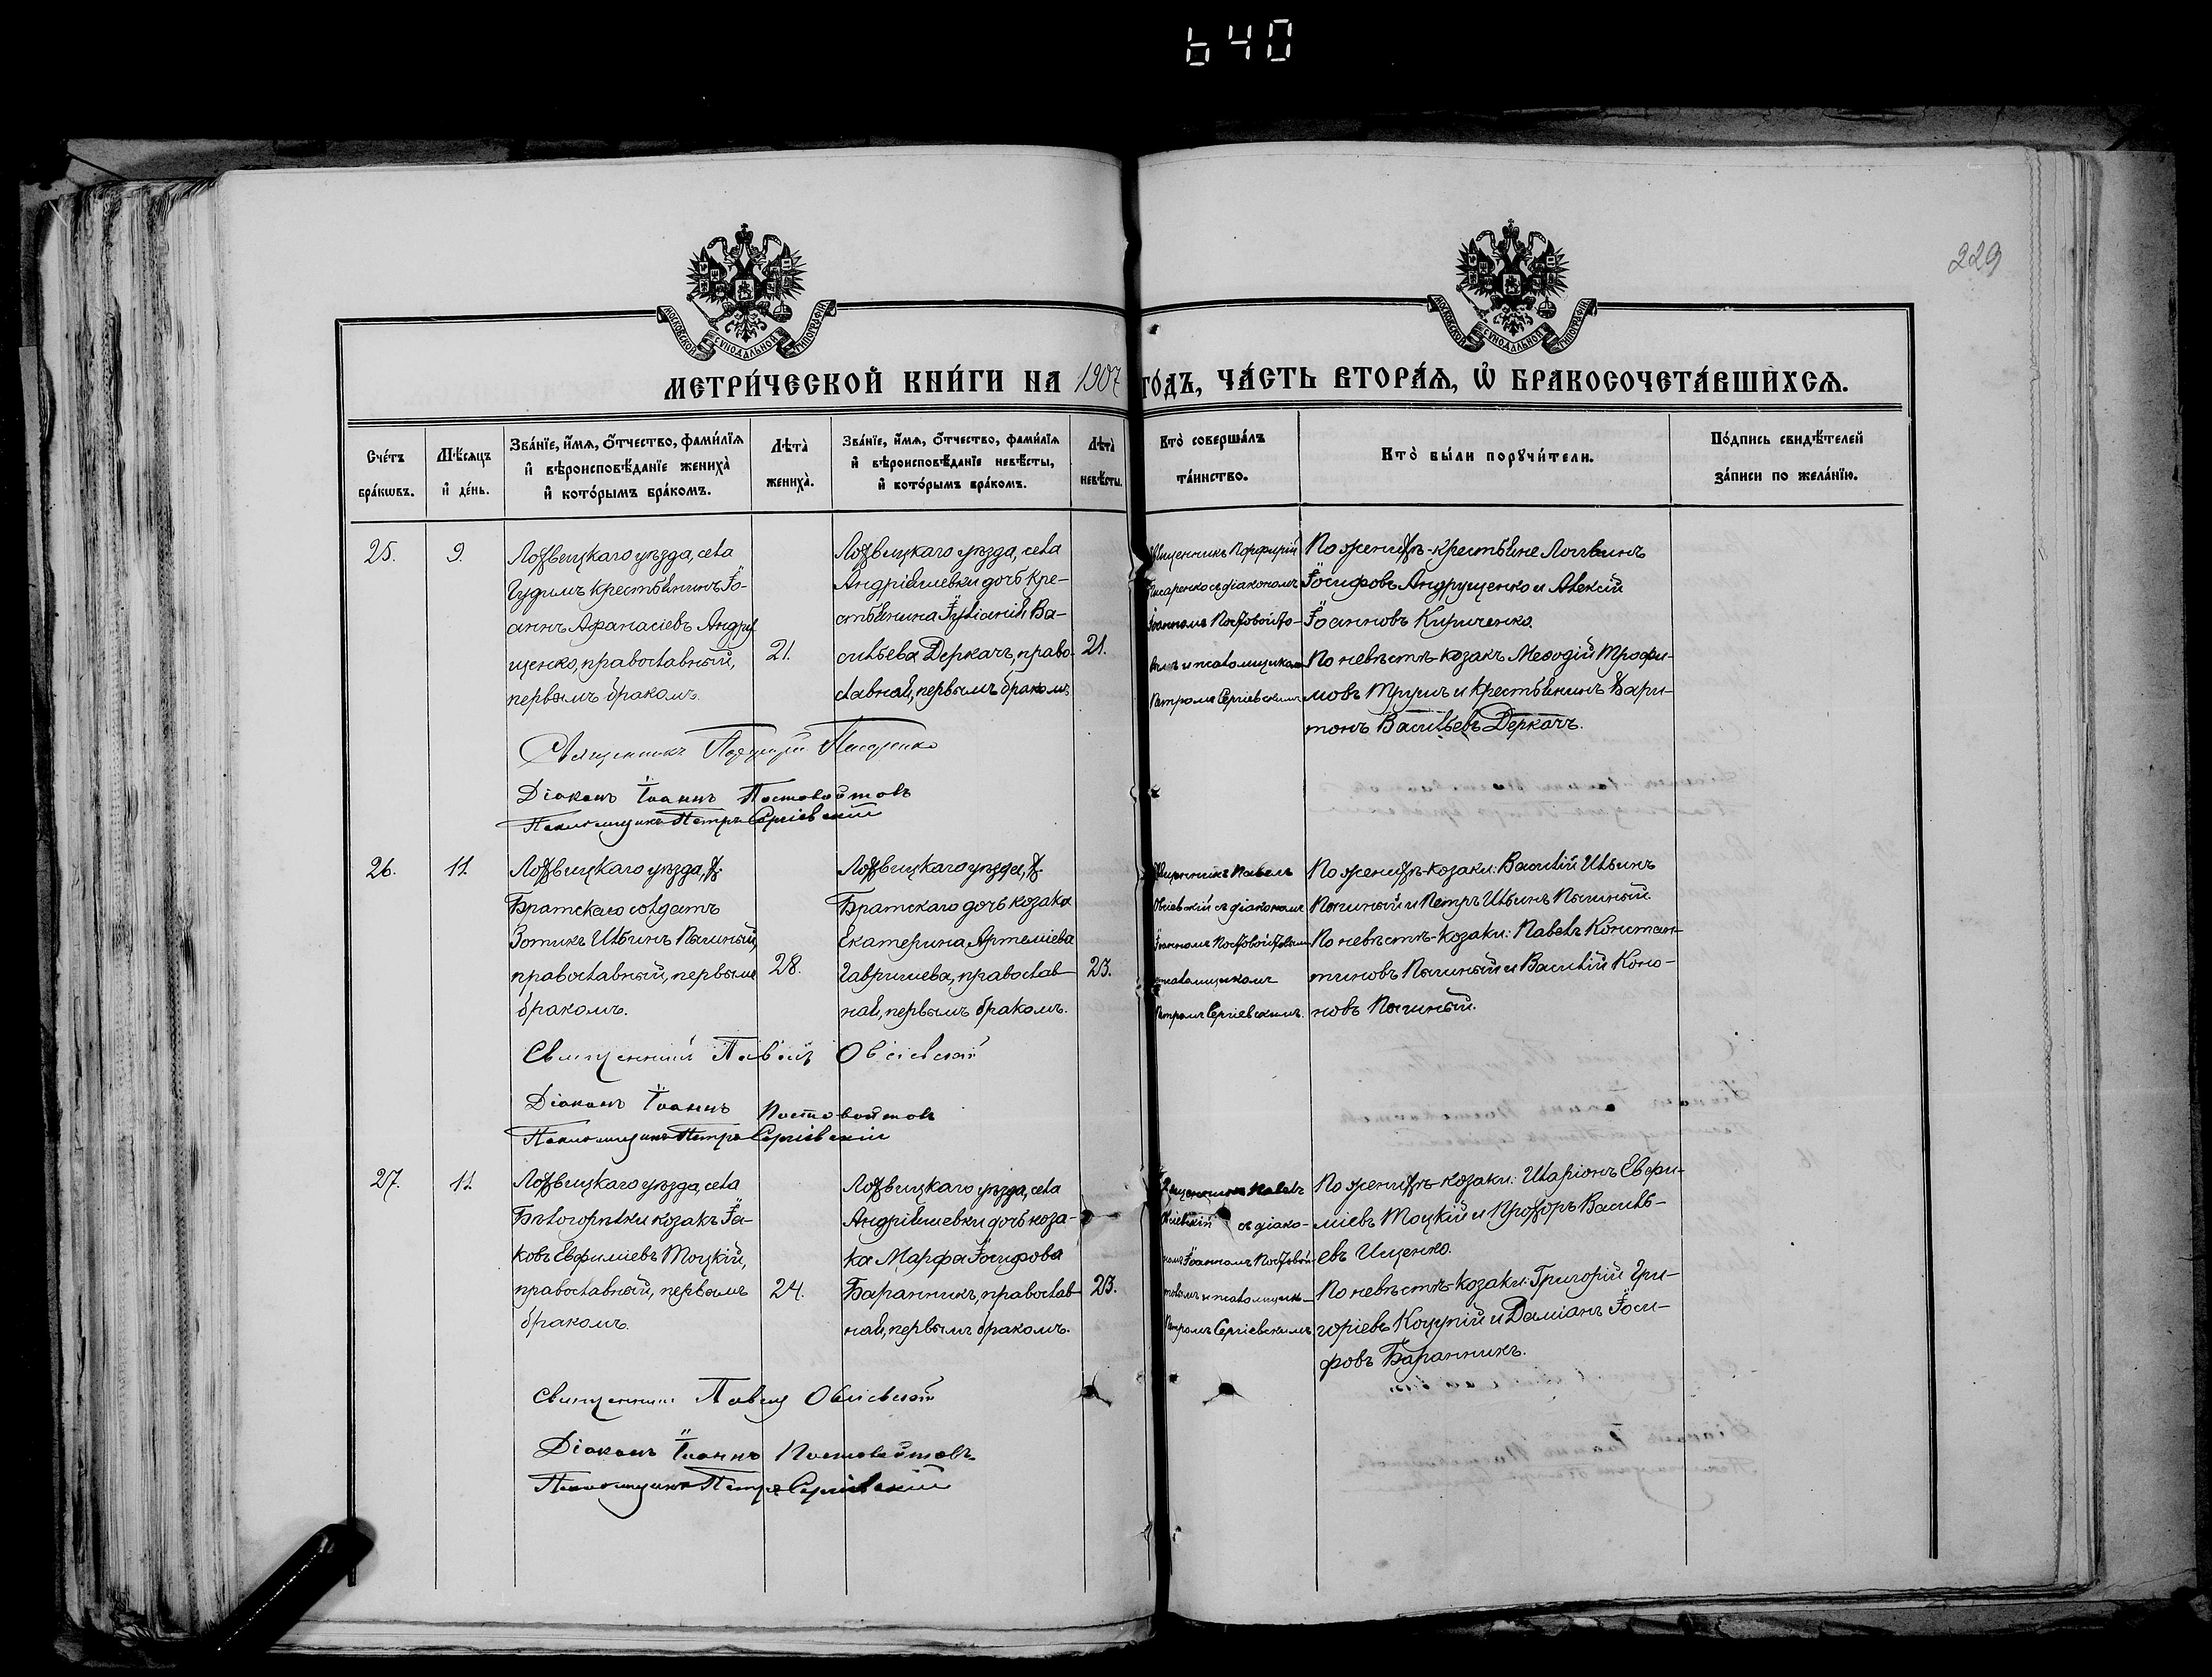 640
229
МОСКОВСКОЙ СѴНОДАЛЬНОЙ ТИПОГРАФІИ
МОСКОВСКОЙ СѴНОДАЛЬНОЙ ТИПОГРАФІИ
МЕТРИ́ЧЕСКОЙ КНИ́ГИ НА 1907 ГО́ДЪ, ЧА́СТЬ ВТОРА́Ѧ, Ѡ҆ БРАКОСОЧЕТА́ВШИХСѦ.
Сче́тъ
бра́кѡвъ.
Мѣ́сѧцъ
и҆ де́нь.
Зва́нїе, и҆́мѧ, ѻ҆́тчество, фами́лїѧ
и҆ вѣроисповѣ́данїе жениха̀
и҆ кото́рымъ бра́комъ.
Лѣта̀
жениха̀.
Зва́нїе, и҆́мѧ, ѻ҆́тчество, фами́лїѧ
и҆ вѣроисповѣ́данїе невѣ́сты,
и҆ кото́рымъ бра́комъ.
Лѣта̀
невѣ́сты.
Кто̀ соверша́лъ
та́инство.
Кто̀ бы́ли порꙋчи́тели.
По́дпись свидѣ́телей
за́писи по жела́нїю.
25.
9.
Лохвицкаго уѣзда, села
Гудимъ крестьянинъ Іо-
аннъ Афанасіевъ Андру
щенко, православный,
первымъ бракомъ.
21.
Лохвицкаго уѣзда, села
Андріяшевки дочь кре-
стьянина Іуліанія Ва-
сильева Деркачъ, право-
славная, первымъ бракомъ
21.
Священникъ Порфирій
Писаренко съ діакономъ
Іоанномъ Постовойто-
вымъ и псаломщикомъ
Петромъ Сергіевскимъ
По женихѣ-крестьяне Логвинъ
Іосифовъ Андрущенко и Алексій
Іоанновъ Кириченко.
По невѣстѣ-козакъ Меѳодій Трофи-
мовъ Трушъ и крестьянинъ Хари-
тонъ Васильевъ Деркачъ.
Священникъ Порфирій Писаренко
Діаконъ Іоаннъ Постовойтовъ
Псаломщикъ Петръ Сергіевскій
26.
11.
Лохвицкаго уѣзда, х.
Братскаго солдатъ
Зотикъ Ильинъ Пычиный,
православный, первымъ
бракомъ.
28.
Лохвицкаго уѣзда, х.
Братскаго дочь козака
Екатерина Артеміева
Гавришева, православ-
ная, первымъ бракомъ.
23.
Священникъ Павелъ
Овсіевскій съ діакономъ
Іоанномъ Постовойтовымъ
псаломщикомъ
Петромъ Сергіевскимъ.
По женихѣ-козаки: Василій Ильинъ
Пычиный и Петръ Ильинъ Пычиный.
По невѣстѣ-козаки: Павелъ Констан-
тиновъ Пычиный и Василій Коно-
новъ Пычиный.
Священникъ Павелъ Овсіевскій
Діаконъ Іоаннъ Постовойтовъ
Псаломщикъ Петръ Сергіевскій
27.
11.
Лохвицкаго уѣзда, села
Бѣлогорѣлки козакъ Іа-
ковъ Евфиміевъ Тоцкій,
православный, первымъ
бракомъ.
24.
Лохвицкаго уѣзда, села
Андріяшевки дочь коза-
ка Марфа Іосифова
Баранникъ, православ-
ная, первымъ бракомъ.
23.
Священникъ Павелъ
Овсіевскій съ діако-
номъ Іоанномъ Постовой-
товымъ и псаломщик-
Петромъ Сергіевскимъ
По женихѣ-козаки: Иларіонъ Евфи-
міевъ Тоцкій и Прохоръ Василь-
евъ Ищенко.
По невѣстѣ-козаки: Григорій Гри-
горіевъ Коцупій и Даміанъ Іоси-
фовъ Баранникъ.
Священникъ Павелъ Овсіевскій
Діаконъ Іоаннъ Постовойтовъ
Псаломщикъ Петръ Сергіевскій